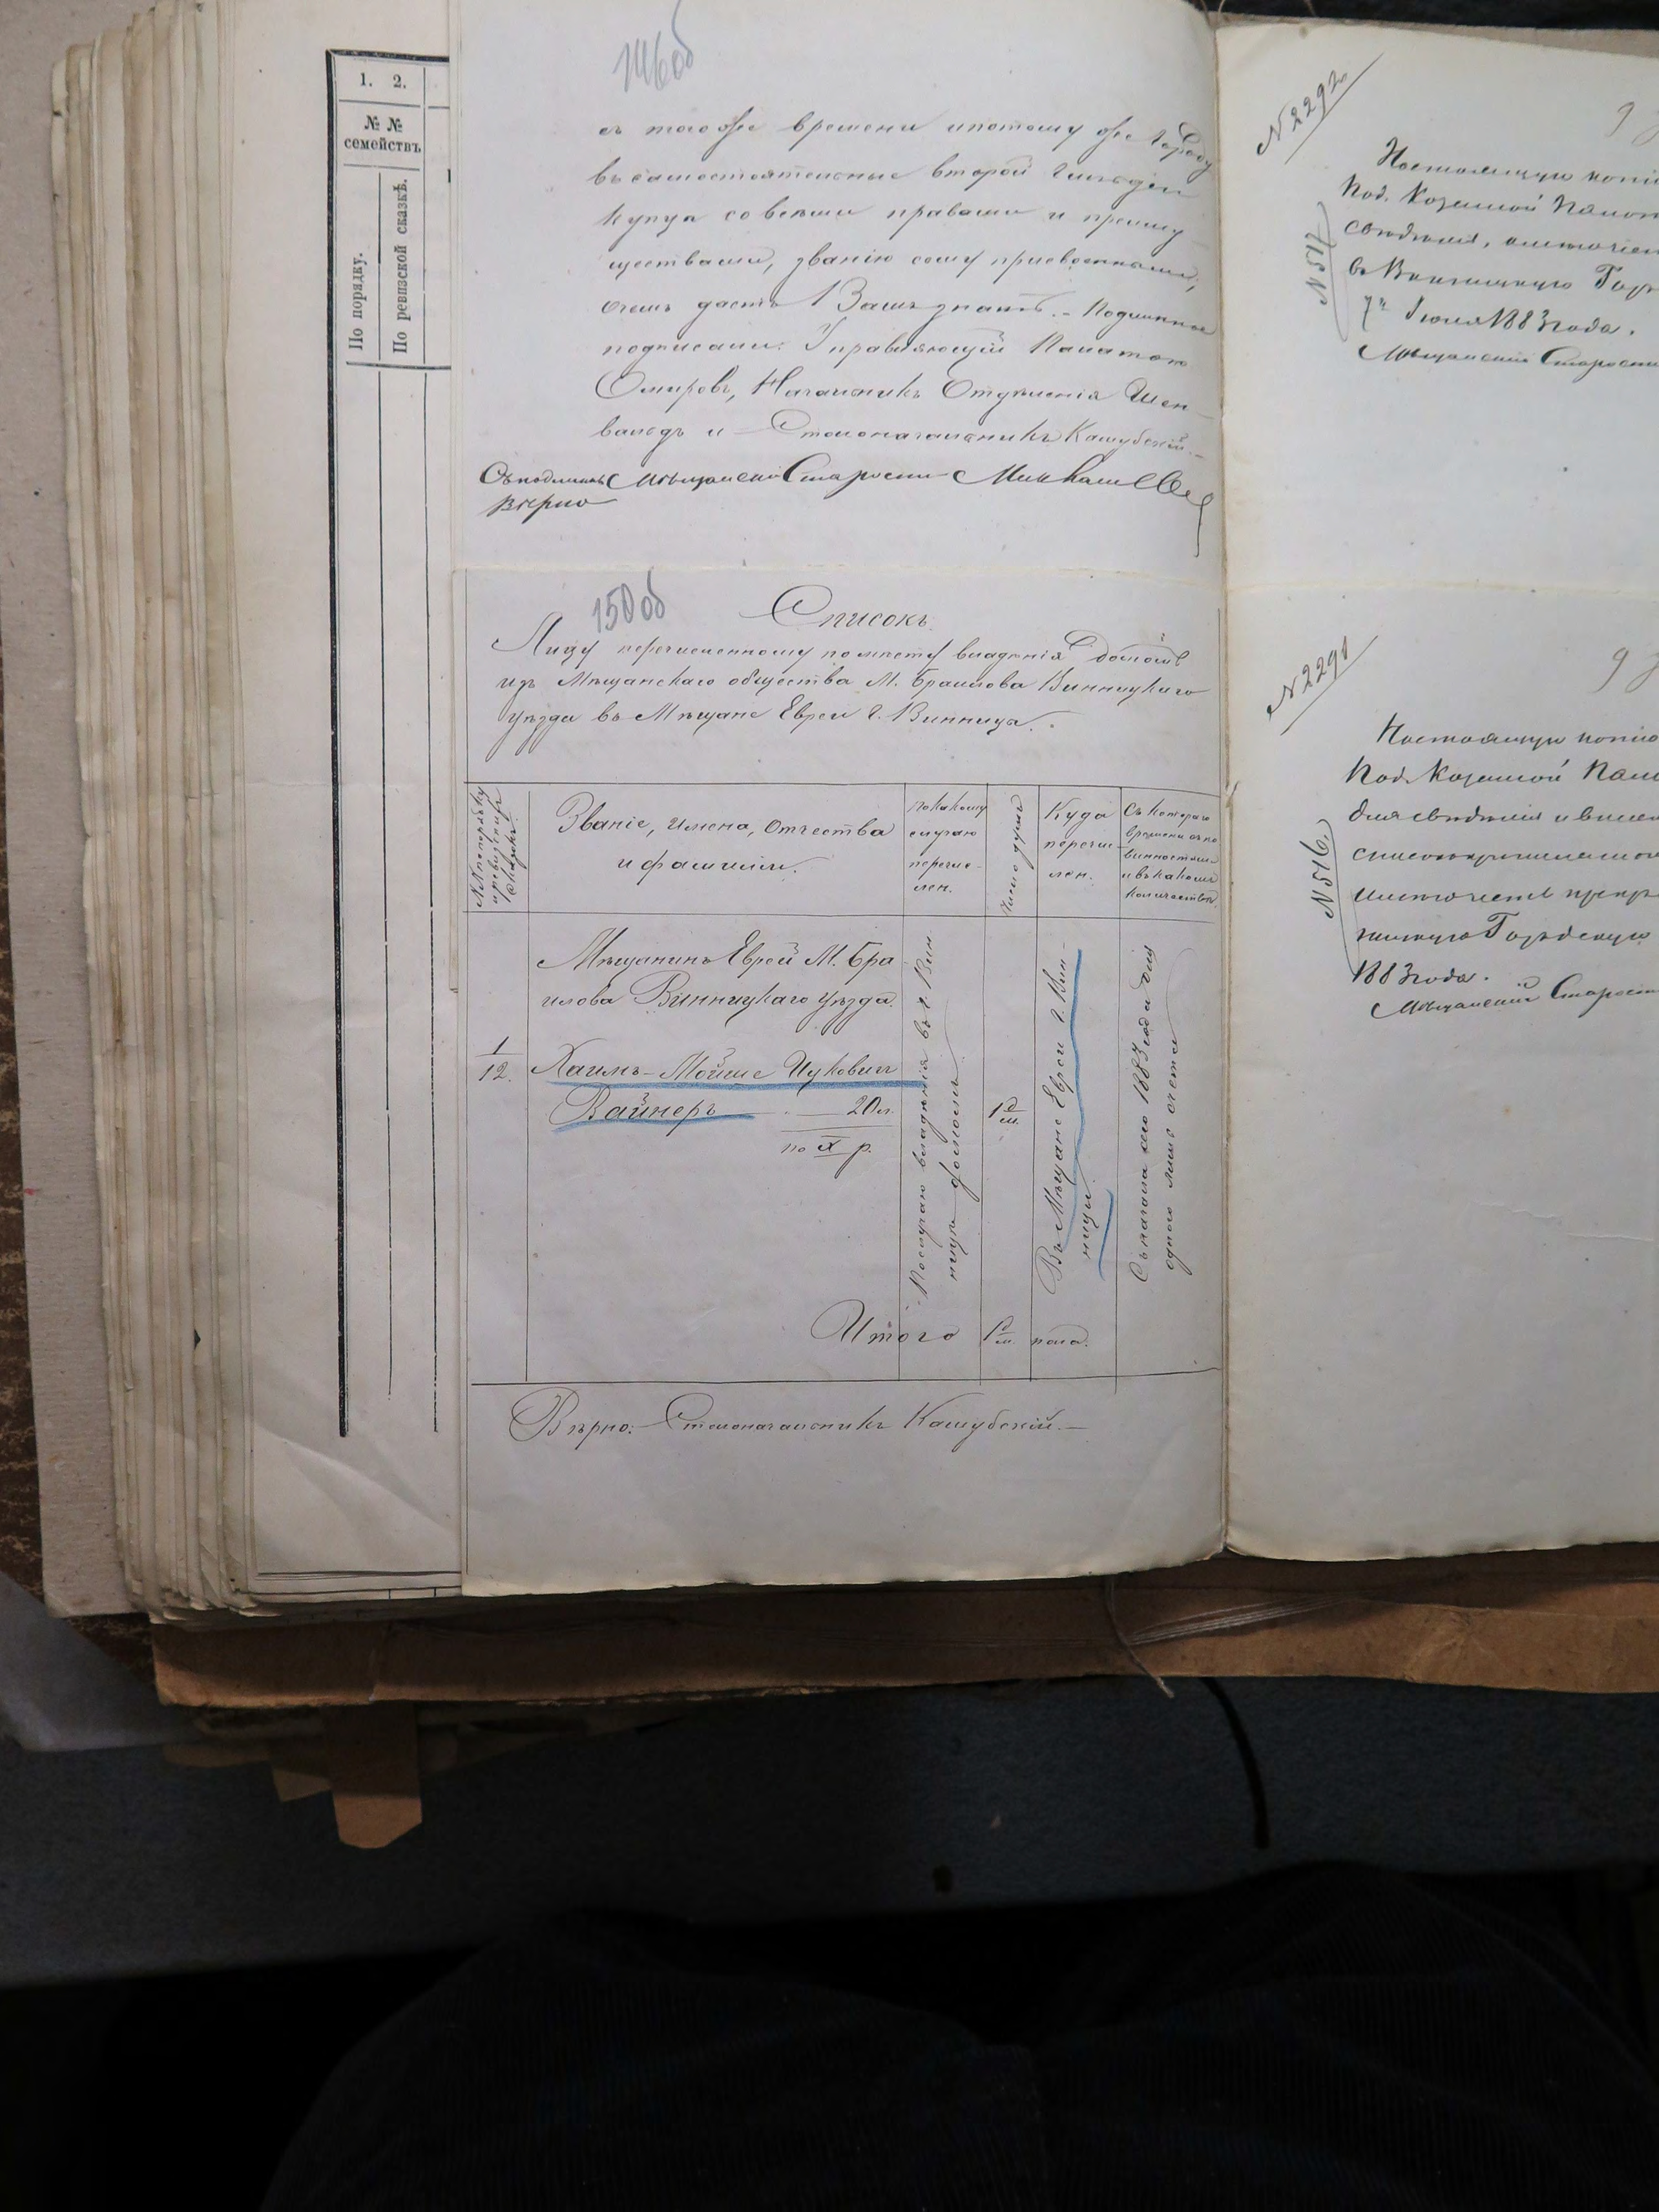 1. 2.
№ №
семействъ
По порядку.
По ревизской сказкѣ.
146 об
съ того же времени и потому же Городу
въ самостоятельные второй гильдіи
купца со всѣми правами и преиму-
ществами, званію сему присвоенными,
о чемъ дастъ Вамъ знать. - Подлинное
подписали: Управляющій Палатою
Смировъ, Начальникъ Отдѣленія Шен-
вальдъ и Столоначальникъ Кашубскій.-
Съ подлиннымъ Мѣщанскій Староста
Вѣрно
150 об
Списокъ
Лицу перечисленному по мѣсту владѣнія домомъ
изъ Мѣщанскаго общества М. Браилова Винницкаго
уѣзда въ Мѣщане Евреи г. Винницы.
№№ по порядку и ревизскихъ сказокъ.
Званіе, имена, отчества
и фамиліи.
по какому
случаю
перечис-
лен.
Число душъ
Куда
перечис-
лен.
Съ котораго
времени съ по-
винностями
и въ какомъ
количествѣ.
Мѣщанинъ Еврей М. Бра-
илова Винницкаго уѣзда.
1
12.
Хаимъ-Мойше Ицковичъ
Вайнеръ 20 л.
по X р.
По случаю владѣнія въ г. Вин-
ницѣ домомъ.
1 д. м.
Въ Мѣщане Евреи г. Вин-
ницы.
Съ начала сего 1883 года для
одного лишь счета
Итого 1 д. м. пола.
Вѣрно: Столоначальникъ Кашубскій.-
№ 2292
№ 517
Настоящую копію
Под. Казенной Палат
свѣдѣнія,
въ Винницкую Гор
7го Іюня 1883 года.
Мѣщанскій Староста
№ 2291
№ 516
Настоящую копію
Под. Казенной Пала
для свѣдѣнія и
1883 года.
Мѣщанскій Староста